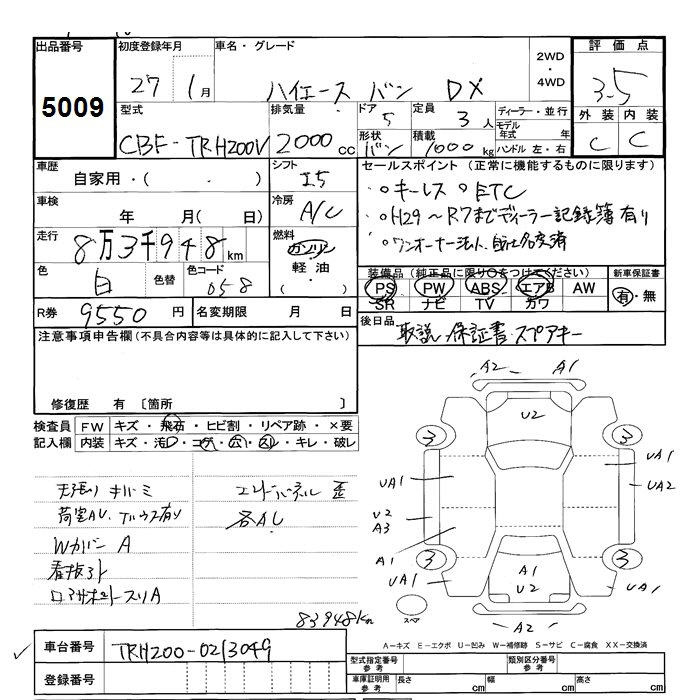 出品番号
5009
初度登録年月
27年1月
車名・グレード
ハイエース バン DX
2WD
・
4WD
評価点
3.5
外装 内装
C C
型式
CBF-TRH200V
排気量
2000cc
ドア
5
形状
バン
定員
3人
積載
1000kg
ディーラー・並行
モデル年式 年
ハンドル 左・右
車歴
自家用・( ・ )
シフト
I5
車検
年 月( 日)
冷房
A/C
走行
8万3千948km
燃料
ガソリン
軽油・
( )
色
白
色替
色コード
058
R券 9550円
名変期限 月 日
セールスポイント(正常に機能するものに限ります)
○キーレス ○ETC
○H29~R7までディーラー記録簿有り
○ワンオーナー法人、自社名変済
装備品(純正品に限り○をつけてください)
PS PW ABS エアB AW
SR ナビ TV カワ
新車保証書
有・無
後日品
取説、保証書・スペアキー
注意事項申告欄(不具合内容等は具体的に記入して下さい)
修復歴 有 〔箇所 〕
検査員
記入欄
FW キズ・飛石・ヒビ割・リペア跡・×要
内装 キズ・汚レ・コゲ・穴・スレ・キレ・破レ
天張り キバミ
荷室AU、
Wカバー A
看板跡
エンドパネル 歪
各AU
83948km
A2 A1
U2
3 3
UA1 UA1
UA2
U2
A3
A1
3 3
UA1 A1 U2 UA1
スペア
A2
A-キズ E-エクボ U-凹み W-補修跡 S-サビ C-腐食 XX-交換済
車台番号 TRH200-0213049
登録番号
型式指定番号 参考
類別区分番号 参考
車庫証明用 参考
長さ cm 幅 cm 高さ cm